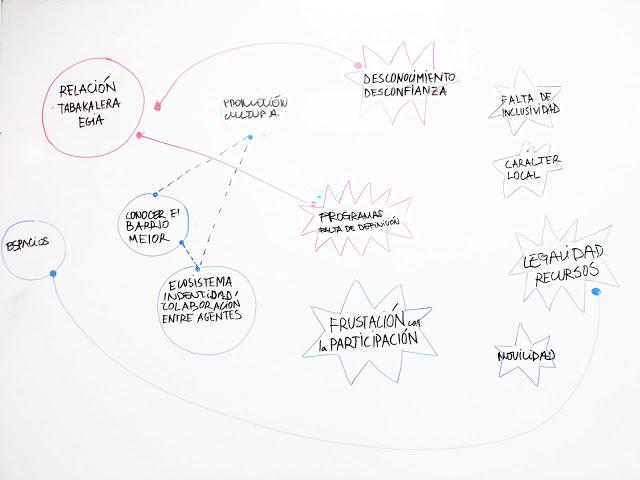 RELACIÓN
TABAKALERA
EGIA
DESCONOCIMIENTO
DESCONFIANZA
PROMOCIÓN
CULTURA
FALTA DE
INCLUSIVIDAD
CARÁCTER
LOCAL
CONOCER El
BARRIO
MEJOR
PROGRAMAS
FALTA DE DEFINICIÓN
ESPACIOS
LEGALIDAD
RECURSOS
ECOSISTEMA
INDENTIDAD/
COLABORACIÓN
ENTRE AGENTES
FRUSTACIÓN con
la PARTICIPACIÓN
MOVILIDAD